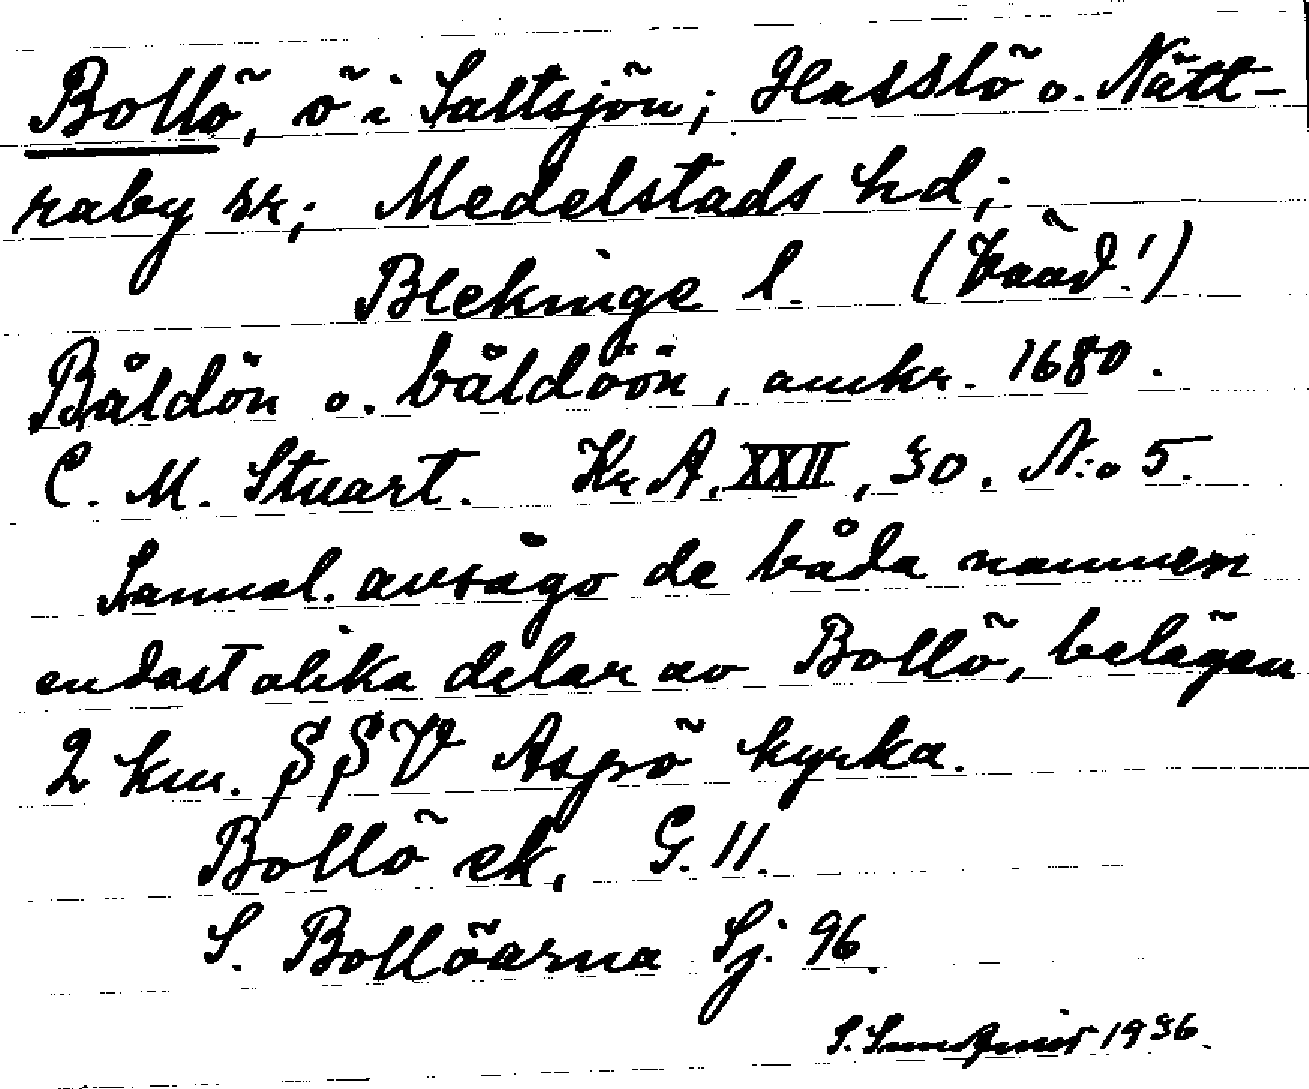 Bollö, ö i Saltsjön; Hasslö o. Nätt-
raby sn; Medelstads hd;
Blekinge l. (båda!)
Båldön o. båldöön, omkr. 1680.
C. M. Stuart. Kr A. XXII, 30. N:o 5.
Sannol. avsågo de båda namnen
endast olika delar av Bollö, belägen
2 km. SSV Aspö kyrka.
Bollö ek. G. 11.
S. Bollöarna Sj. 96.
S. Sundquist 1936.